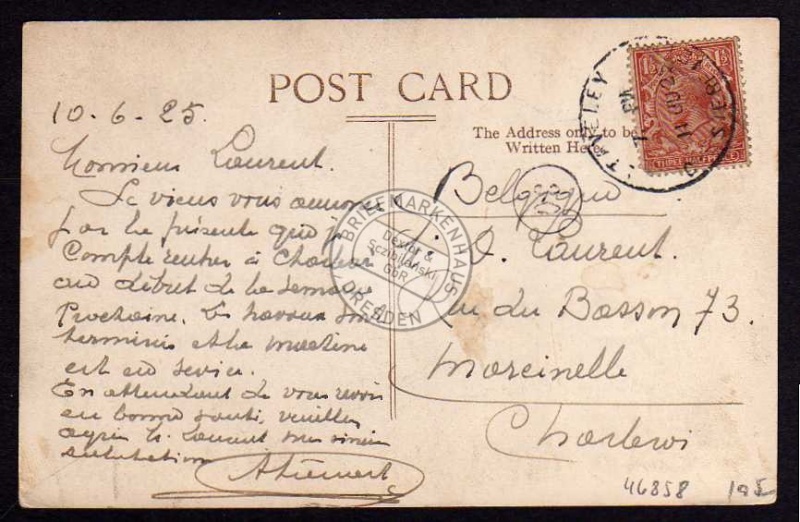 POST CARD
10-6-25.
The Address only to be
Written Here.
Monsieur Laurent.
Je viens vous annoncer
par la présente que je
Compte rentrer à Charleroi
au début de la semaine
Prochaine. Les travaux sont
terminés et la machine
est en service.
En attendant de vous revoir
en bonne santé, veuillez
agréer Mr. Laurent mes
salutations
Belgique
Laurent.
rue du Basson 73.
Marcinelle
Charleroi
46858
STAVELEY
THREE HALFPENCE
BRIEFMARKENHAUS
Dexler &
Sczibilanski
GbR
DRESDEN